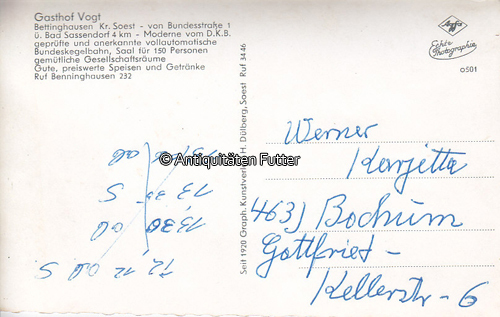 Gasthof Vogt
Bettinghausen Kr. Soest - von Bundesstraße 1
ü. Bad Sassendorf 4 km - Moderne vom D.K.B.
geprüfte und anerkannte vollautomatische
Bundeskegelbahn, Saal für 150 Personen
gemütliche Gesellschaftsräume
Gute, preiswerte Speisen und Getränke
Ruf Benninghausen 232
Agfa
Echte
Photographie
o501
Seit 1920 Graph. Kunstverlag H. Dülberg, Soest Ruf 3446
© Antiquitäten Futter
Werner
463) Bochum
Gottfried-
Kellerstr-6